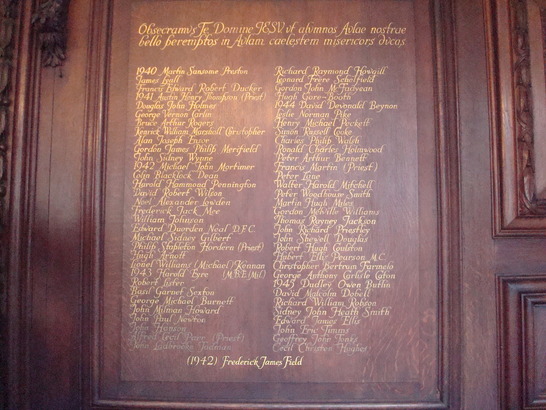 Obsecramus Te, Domine JESU ut alumnos Aulae nostrae
bello peremptos in Aulam caelestem misericors ducas.
1940 Martin Sansome Preston
James Lyall
Francis Edward Robert Ducker
1941 Austin Henry Houghton (Priest)
Douglas John Holmes
George Vernon Carlin
Bruce Arthur Rogers
William Marshall Christopher
Alan Joseph Ensor
Gordon James Philip Merifield
John Sidney Wynne
1942 Michael John Mortimer
Colin Blacklock Dean
Harold Hammond Pennington
David Robert Wilson
Noel Alexander Lowden
Frederick Jack Mee
William Johnson
Edward Neal D.F.C.
Michael Sidney Gilbert
Philip Stapleton Hordern (Priest)
Hugh Arnott
Lionel William (Michael) Kinnan
1943 Harold Eyre (M.B.E.)
Robert Lister
Basil Garnet Sexton
George Michael Burnett
John Milman Howard
John Paul Newton
John Hanson
Alfred (Priest)
John
Richard Raymond Howgill
Leonard Frere
Gordon John
Hugh
1944 David Devonald Beynon
Leslie Norman Pike
Henry Michael Peckett
Simon Russell Cooke
Charles Philip Walsh
Ronald Charles Holmwood
Peter Arthur Bennett
Francis Martin (Priest)
Peter Lane
Walter Harold Mitchell
Peter Woodhouse Smith
Martin Hugh Myles
Gordon Melville Williams
Thomas Rooney Jackson
John Richard Priestley
John Shewell Douglas
Robert Hugh Coulson
Hubert Ellis Pearson M.C.
Christopher Bertram Farmelo
George Anthony Carlisle Caton
1945 Dudley Owen Butlin
David Malcolm Dobell
Richard William Robson
Sidney John Heath Smith
Edward James Ellis
John Eric Timms
Geoffrey John Jones
Cecil Christen Hughes
(1942) Frederick James Field